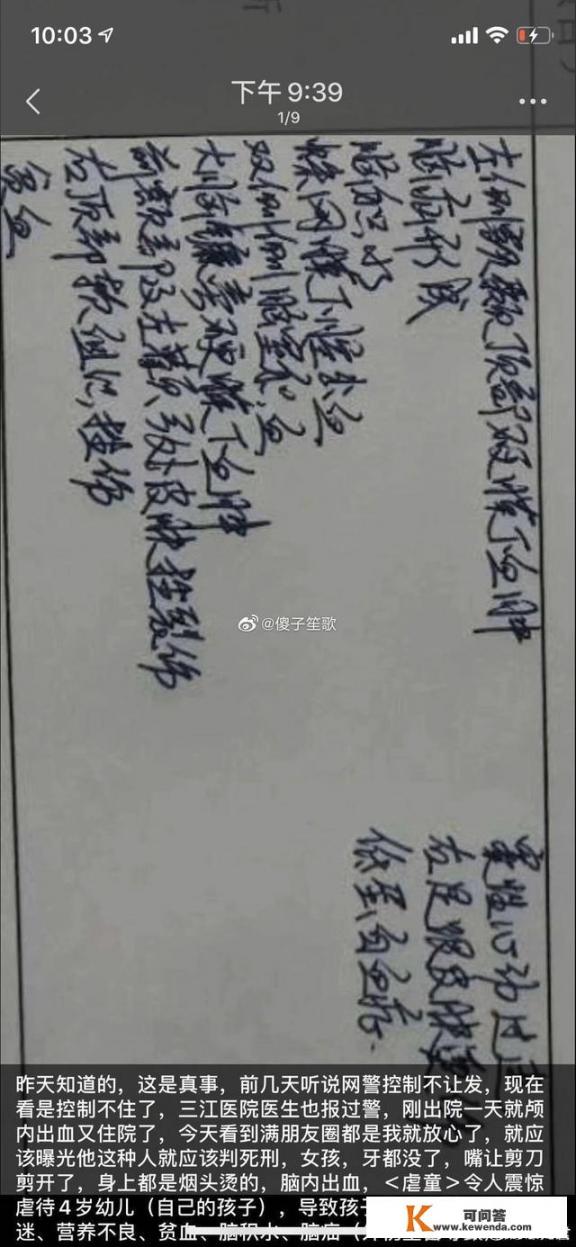 10:03
下午 9:39
1/9
左侧额颞顶部硬膜下血肿
脑疝形成
脑积水
蛛网膜下腔出血
双侧侧脑室积血
大脑镰旁硬膜下血肿
前额部及左鼻唇纵处皮肤挫裂伤
左顶部软组织挫伤
贫血
窦性心动过
右足跟皮肤
低蛋白血症.
@傻子笙歌
昨天知道的，这是真事，前几天听说网警控制不让发，现在
看是控制不住了，三江医院医生也报过警，刚出院一天就颅
内出血又住院了，今天看到满朋友圈都是我就放心了，就应
该曝光他这种人就应该判死刑，女孩，牙都没了，嘴让剪刀
剪开了，身上都是烟头烫的，脑内出血，<虐童>令人震惊
虐待4岁幼儿（自己的孩子），导致孩子
迷、营养不良、贫血、脑积水、脑疝（
K 可问答
www.kewenda.com